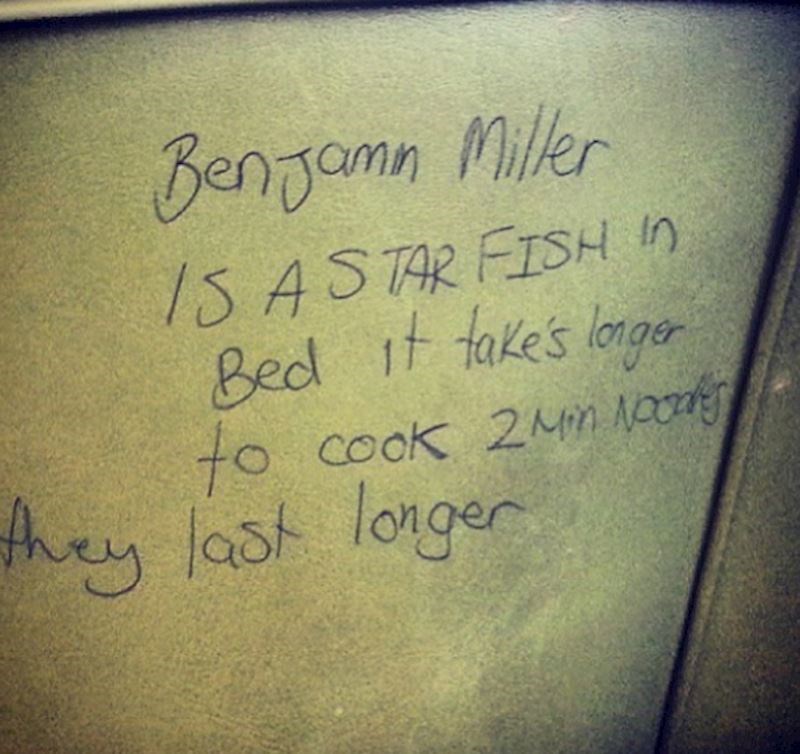 Benjamin Miller
IS A STAR FISH in
Bed it take's longer
to cook 2 Min Noodles
they last longer